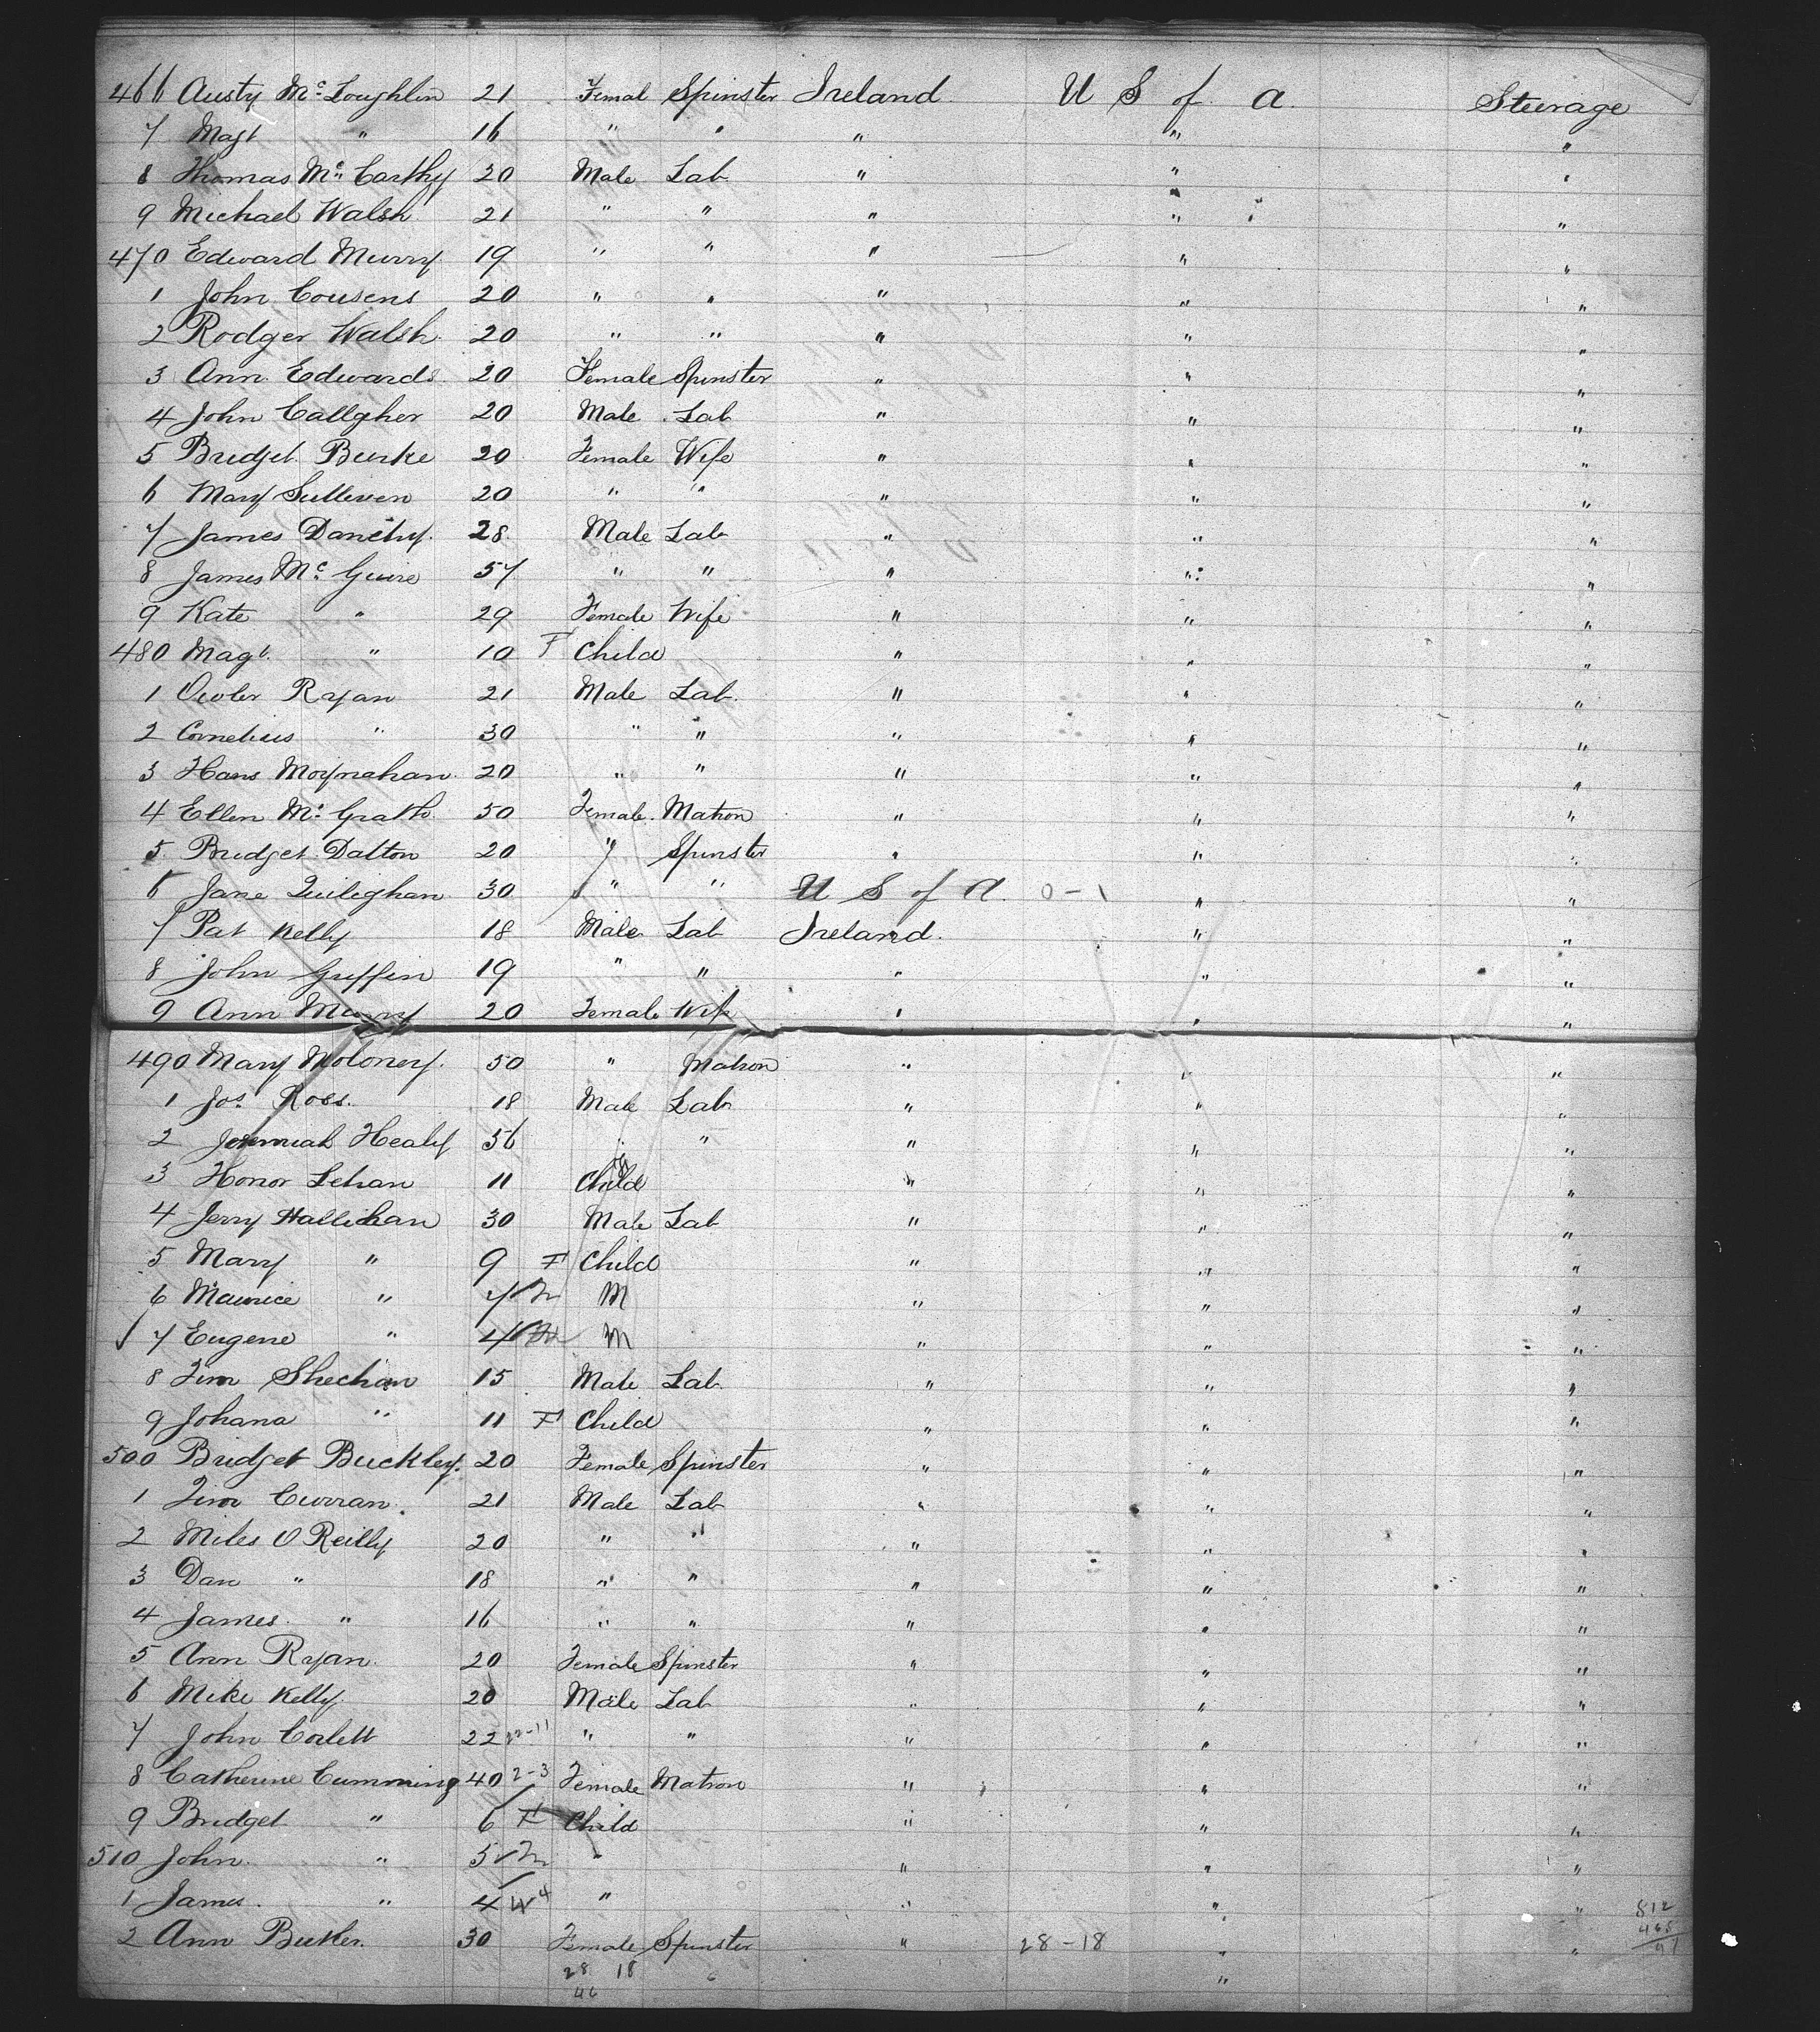 466 Austy Mc Loughlin 21 Femal Spinster Ireland. U S of A. Steerage
7 Magt " 16 " " " " "
8 Thomas Mc Carthy 20 Male Lab " " "
9 Michael Walsh 21 " " " " "
470 Edward Murry 19 " " " " "
1 John Cousens 20 " " " " "
2 Rodger Walsh 20 " " " " "
3 Ann Edwards 20 Female Spinster " " "
4 John Callgher 20 Male Lab " " "
5 Bridget Burke 20 Female Wife " " "
6 Mary Sulliven 20 " " " " "
7 James Danehy 28 Male Lab " " "
8 James Mc Guire 57 " " " " "
9 Kate " 29 Female Wife " " "
480 Magt. " 10 F Child " " "
1 Ryan 21 Male Lab. " " "
2 Cornelius " 30 " " " " "
3 Hans Moynahan 20 " " " " "
4 Ellen Mc Grath 50 Female Matron " " "
5 Bridget Dalton 20 " Spinster " " "
6 Jane Quilighan 30 " " U S of A. 0-1 " "
7 Pat Kelly 18 Male Lab Ireland. " "
8 John Griffin 19 " " " " "
9 Ann Murry 20 Female Wife " " "
490 Mary Moloney. 50 " Matron " " "
1 Jos. Ross. 18 Male Lab " " "
2 Jeremiah Healy 56 " " " " "
3 Honor Lehan 11 Child " " "
4 Jerry Hallichan 30 Male Lab " " "
5 Mary " 9 F Child " " "
6 Maurice " 7 M M " " "
7 Eugene " 4 M M " " "
8 Tim Shechan 15 Male Lab. " " "
9 Johana " 11 F Child " " "
500 Bridget Buckley. 20 Female Spinster " " "
1 Tim Curran. 21 Male Lab " " "
2 Miles O Reilly 20 " " " " "
3 Dan " 18 " " " " "
4 James. " 16 " " " " "
5 Ann Ryan. 20 Female Spinster " " "
6 Mike Kelly. 20 Male Lab " " "
7 John Corlett 22 22-11 " " " " "
8 Catherine Cumming 40 2-3 Female Matron " " "
9 Bridget " 6 F Child " " "
510 John. " 5 M " " " "
1 James. " 4 4 " " " "
2 Ann Butler. 30 Female Spinster " 28-18 " "
28 18 "
46
512
465
47